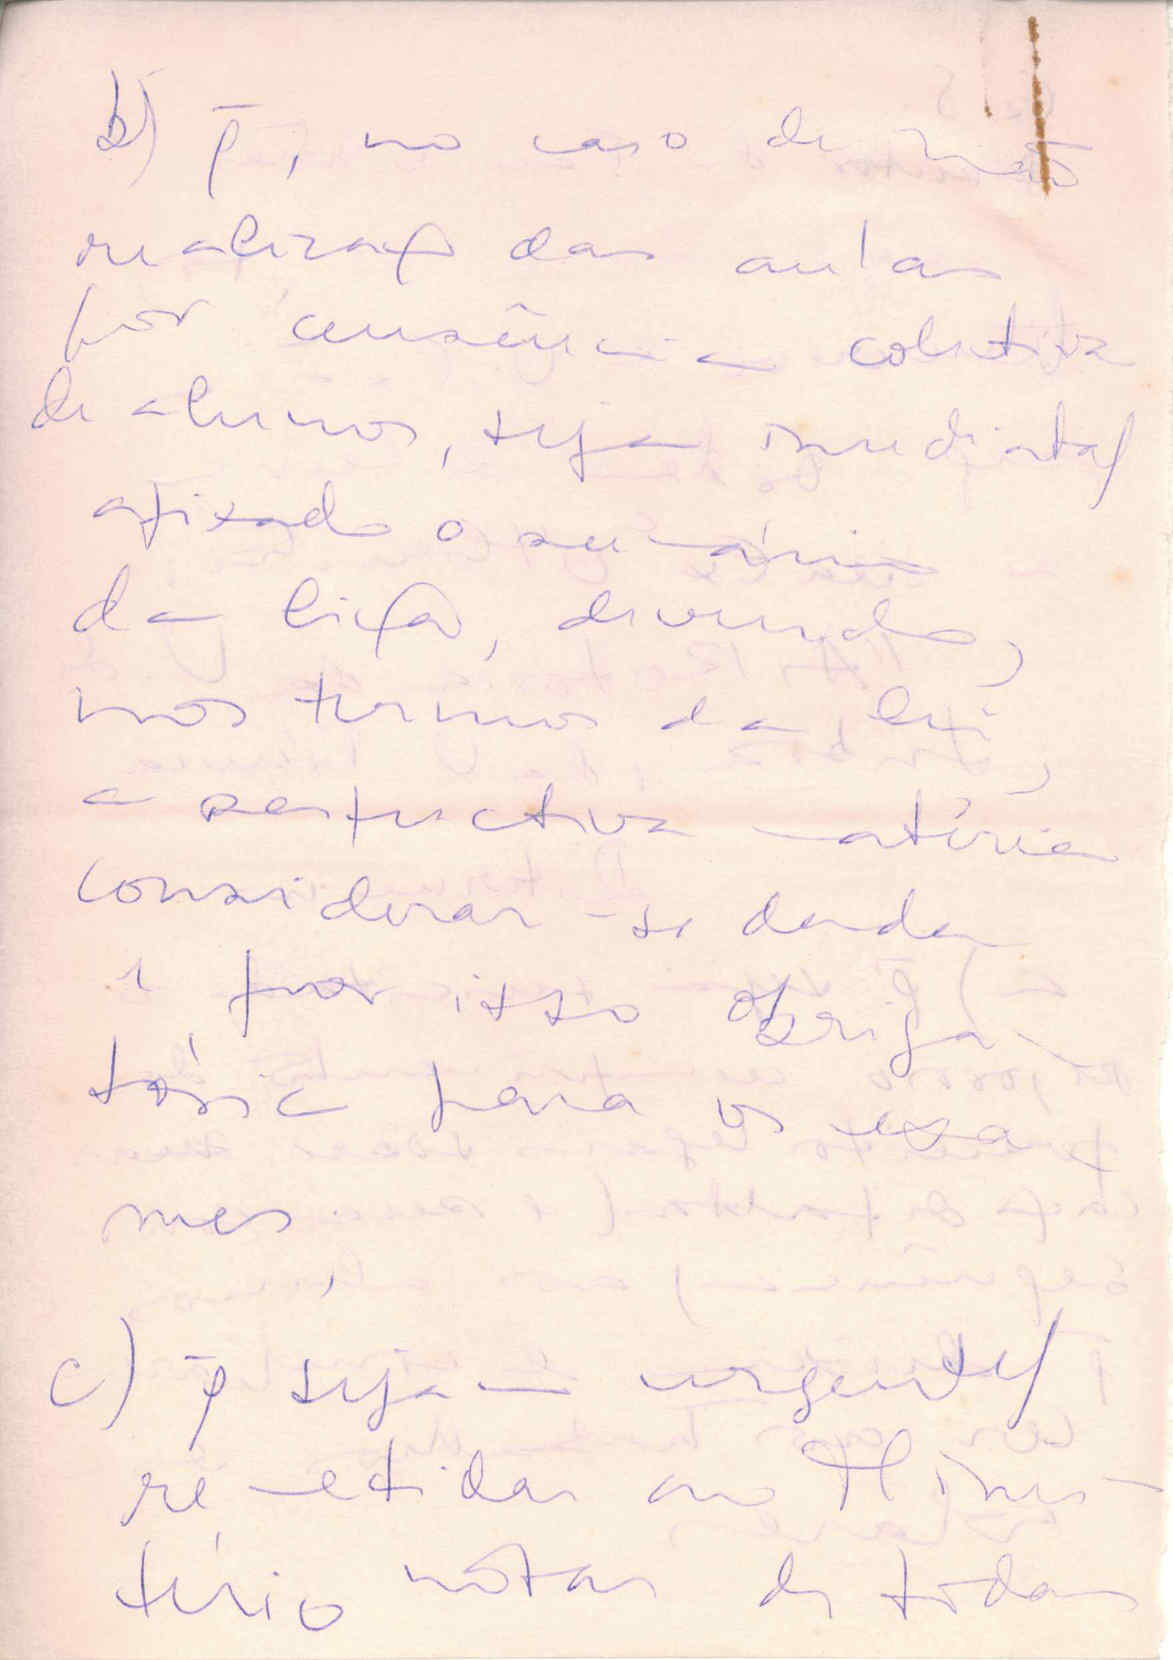 b) p̄, no caso de não
realização das aulas
por ausência colectiva
de alunos, seja imediata/
afixado o sumário
da lição, devendo,
nos termos da lei,
a respectiva matéria
considerar-se dada
e por isso obriga-
tória para os exa
mes.
c) p̄ sejam urgente/
remetidas ao Minis-
tério notas de todas